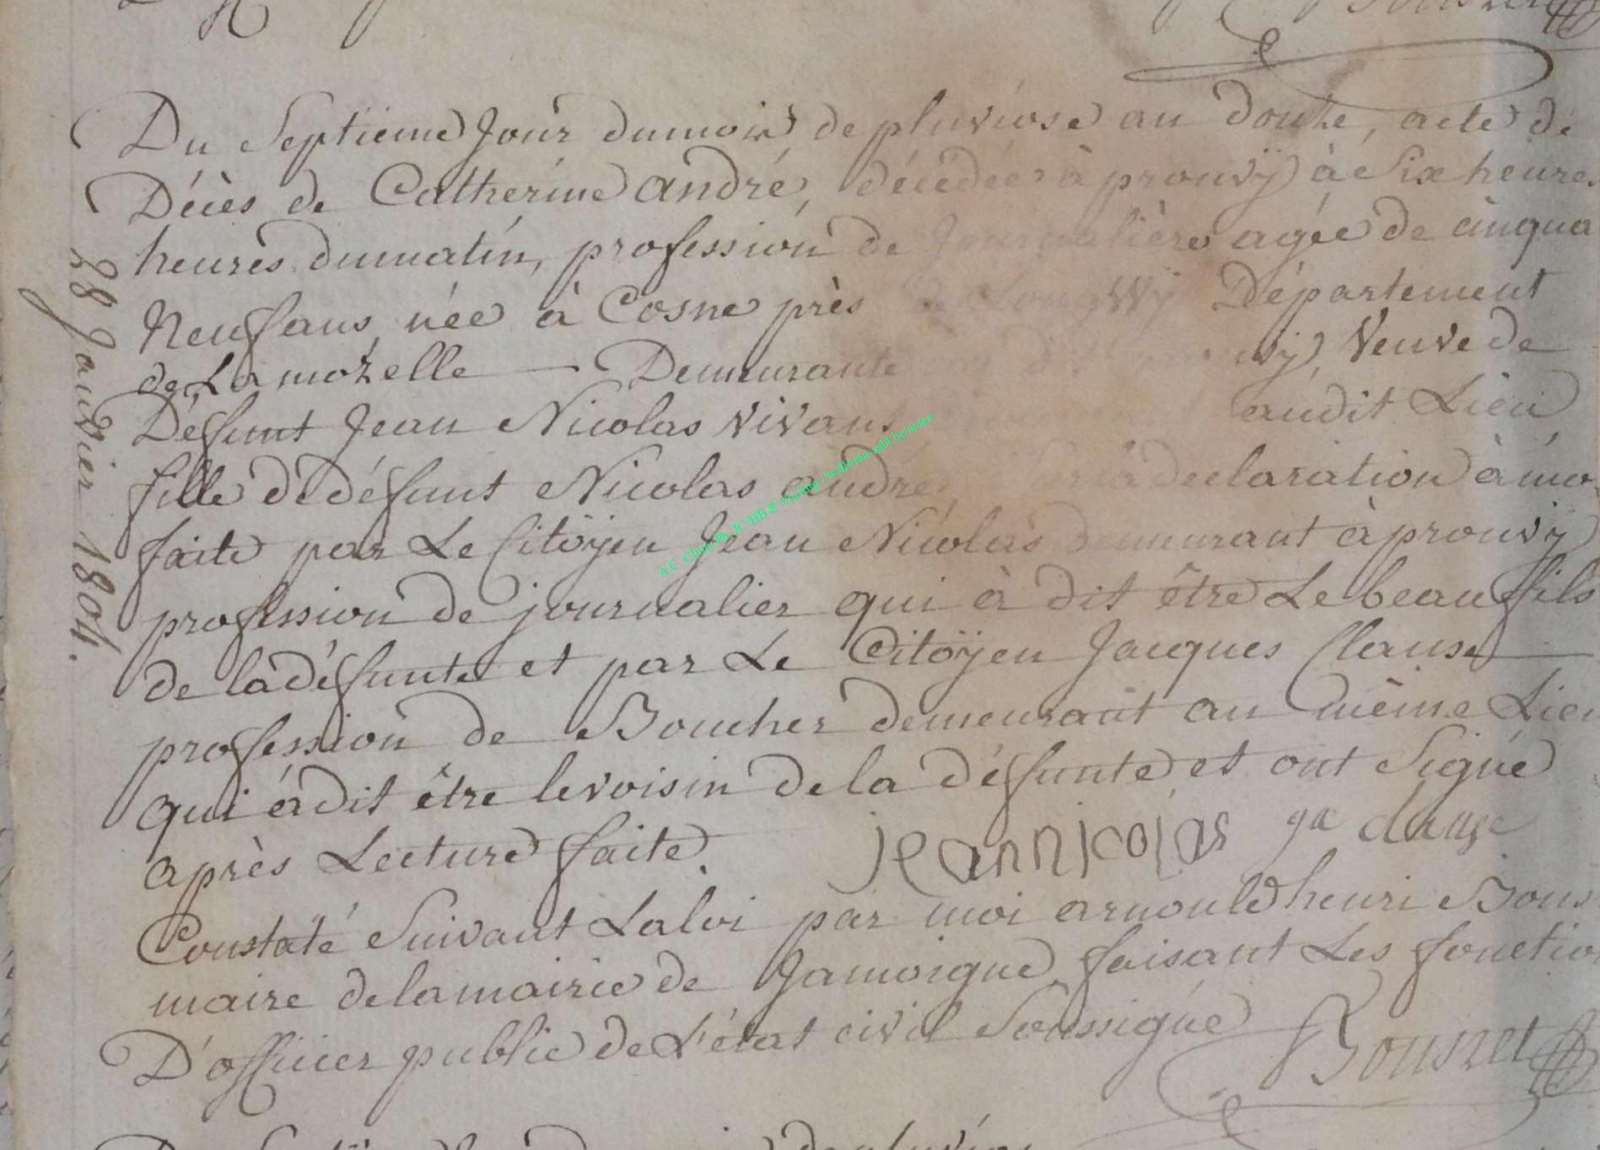 Du Septieme Jour du mois de pluviose an douze, acte de
Décès de Catherine andré, décédée à prouvÿ à Six heures
heures du matin, profession de Journalière agée de cinqua
Neuf ans née à Cosne près de Longwy Département
de La mozelle — Demeurante Veuve de
Défunt Jean Nicolas vivant audit Lieu
fille de défunt Nicolas andré la declaration à mo
faite par Le Citoÿen Jean Nicolas demeurant à prouvÿ
profession de journalier qui à dit être Le beau fils
de la défunte et par Le Citoÿen Jacques Clause
profession de Boucher demeurant au même Lieu
qui à dit être le voisin de la défunte et ont Signé
après Lecture faite. jean nicolas
Constaté Suivant La loi par moi arnould henri Bous
maire de la mairie de Jamoigne faisant Les fonction
D'officier public de L'état civil Soussigné
28 Janvier 1804.